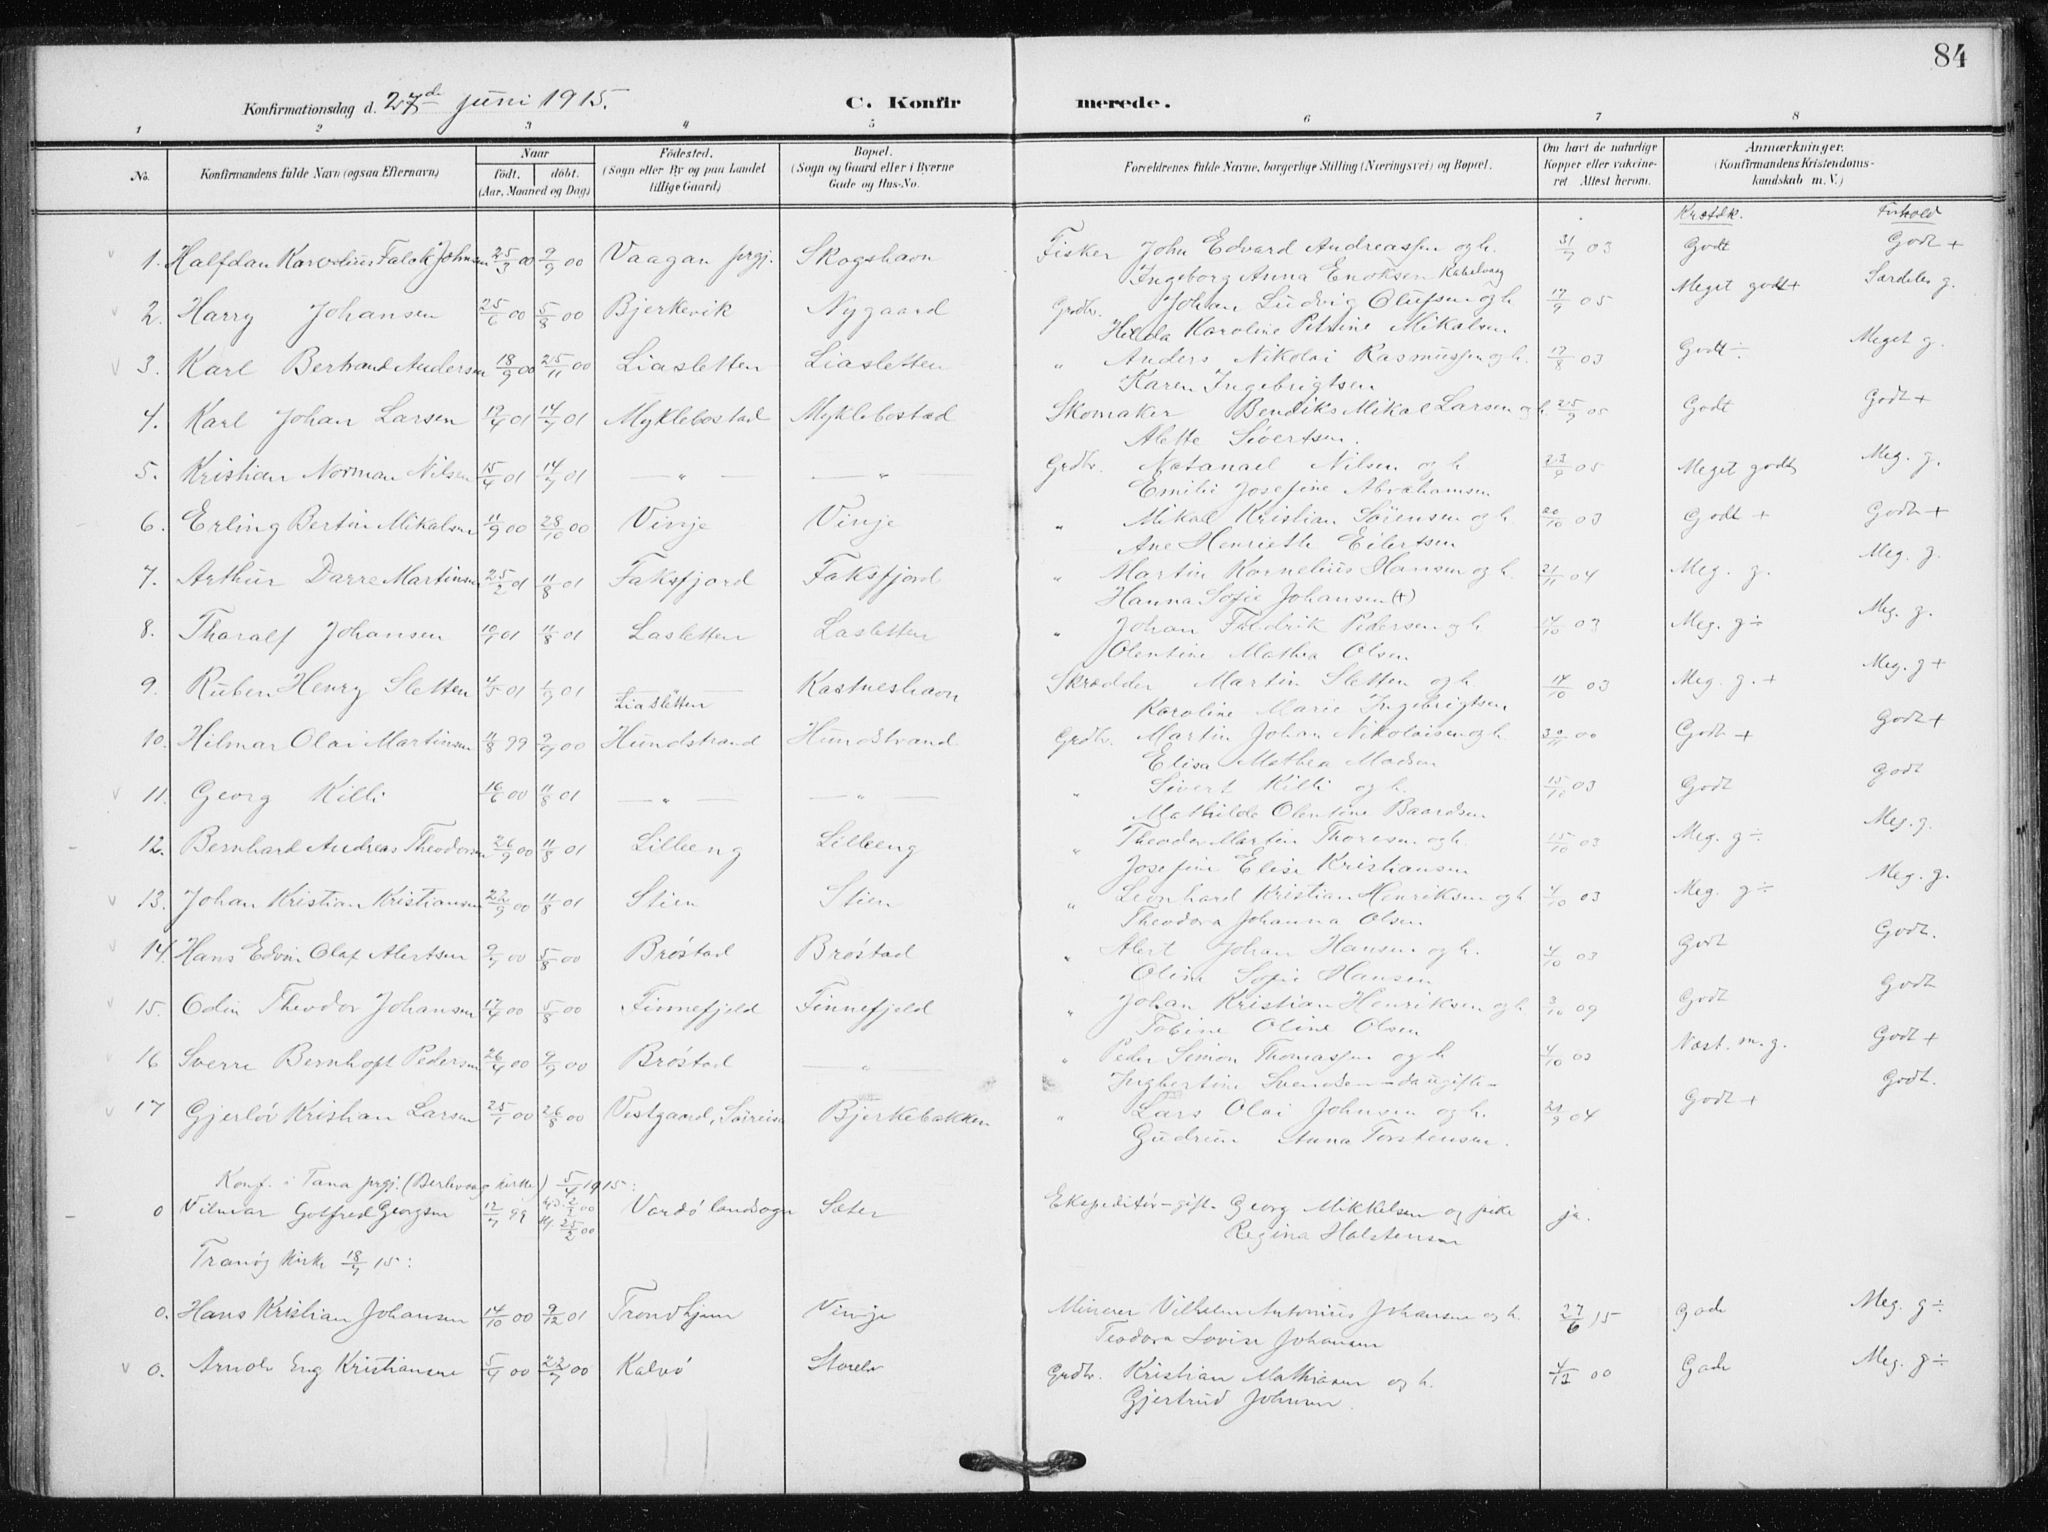 84
Konfirmationsdag d. 27de juni 1915. C. Konfirmerede.
1 2 3 4 5 6 7 8
No. Konfirmandens fulde Navn (ogsaa Efternavn) Naar født. døbt. (Aar, Maaned og Dag) Fødested. (Sogn eller By og paa Landet tillige Gaard) Bopæl. (Sogn og Gaard eller i Byerne Gade og Hus-No. Forældrenes fulde Navne, borgerlige Stilling (Næringsvei) og Bopæl. Om havt de naturlige Kopper eller vaccineret Attest herom. Anmærkninger. (Konfirmandens Kristendomskundskab m. V.)
Krstdk. Forhold
1. Halfdan Karolius Falck Johnsen 25/3 00 9/9 00 Vaagan prgj. Skogshavn Fisker John Edvard Andreassen og h. 31/7 03 Godt Godt +
Ingeborg Anna Enoksen Kabelvaag
2. Harry Johansen 25/6 00 5/8 00 Bjerkevik Nygaard Grdbr. Johan Ludvig Olufsen og h. 17/9 05 Meget godt + Særdeles g.
Helda Karoline Petrine Mikalsen
3. Karl Bertrand Andersen 18/9 00 25/11 00 Liasletten Liasletten " Anders Nikolai Rasmussen og h. 17/8 03 Godt ÷ Meget g.
Karen Ingebrigtsen
4. Karl Johan Larsen 19/4 01 14/7 01 Myklebostad Myklebostad Skomaker Bendiks Mikal Larsen og h. 25/9 05 Godt Godt +
Alette Sivertsen.
5. Kristian Norman Nilsen 15/4 01 14/7 01 — " — — " — Grdbr. Natanael Nilsen og h. 23/9 05 Meget godt Meg. g.
Emilie Josefine Abrahamsen
6. Erling Bertin Mikalsen 11/9 00 28/10 00 Vinje Vinje " Mikal Kristian Sørensen og h. 20/10 03 Godt + Godt +
Ane Henriette Eilertsen
7. Arthur Darre Martinsen 25/2 01 11/8 01 Faksfjord Faksfjord " Martin Kornelius Hansen og h. 21/11 04 Meg. g. Meg. g.
Hanna Sofie Johansen (+)
8. Tharalf Johansen 10/7 01 11/8 01 Lasletten Lasletten " Johan Fredrik Pedersen og h. 14/10 03 Meg. g ÷ Meg. g.
Olentine Mathea Olsen
9. Ruben Henry Sletten 4/5 01 1/9 01 Liasletten Kastneshavn Skrædder Martin Sletten og h. 14/10 03 Meg. g. + Meg. g +
Karoline Marie Ingebrigtsen
10. Hilmar Olai Martinsen 11/8 99 9/9 00 Hundstrand Hundstrand Grdbr. Martin Johan Nikolaisen og h. 30/11 00 Godt + Godt +
Elisa Mathea Madsen
11. Georg Killi 16/6 00 11/8 01 — " — — " — " Sivert Killi og h. 15/10 03 Godt Godt
Mathilde Olentine Baardsen
12. Bernhard Andreas Theodorsen 26/9 00 11/8 01 Lilleeng Lilleeng " Theodor Martin Thoresen og h. 15/10 03 Meg. g ÷ Meg. g.
Josefine Elise Kristiansen
13. Johan Kristian Kristiansen 22/9 00 11/8 01 Stien Stien " Leonhard Kristian Henriksen og h 4/10 03 Meg. g ÷ Meg. g.
Theodora Johanna Olsen
14. Hans Edvin Olaf Alertsen 9/7 00 5/8 00 Brøstad Brøstad " Alert Johan Hansen og h. 4/10 03 Godt Godt.
Oline Sofie Hansen
15. Odin Theodor Johansen 17/4 00 5/8 00 Finnefjeld Finnefjeld " Johan Kristian Henriksen og h 3/10 09 Godt Godt
Tobine Oline Olsen
16 Sverre Bernhoft Pedersen 26/4 00 9/9 00 Brøstad — " — " Peder Simon Thomassen og h 4/10 03 Næst. m. g. Godt +
Ingbertine Svendsen – da ugifte –
17 Gjerløv Kristian Larsen 25/7 00 26/8 00 Vestgaard, Sørreisa Bjerkebakken " Lars Olai Johnsen og h. 21/9 04 Godt + Godt.
Gudrun Anna Torstensen.
Konf. i Tana prgj. (Berlevaag kirke) 5/4 1915:
0 Vilmar Gotfred Georgsen 12/7 99 00 25/2 00 Vardø landsogn Sæter Ekspeditør – gift – Georg Mikkelsen og pike ja.
Regina Halstensen
Tranøy kirke 18/7 15:
0. Hans Kristian Johansen 14/10 00 9/12 01 Trondhjem Vinje Minerer Vilhelm Antonius Johansen og h. 27/6 15 Gode Meg. g ÷
Teodora Lovise Johansen
0. Arnolv Eng Kristiansen 5/4 00 22/7 00 Kalvø Storelv Grdbr. Kristian Mathiasen og h. 4/12 00 Gode Meg. g ÷
Gjertrud Johnsen.